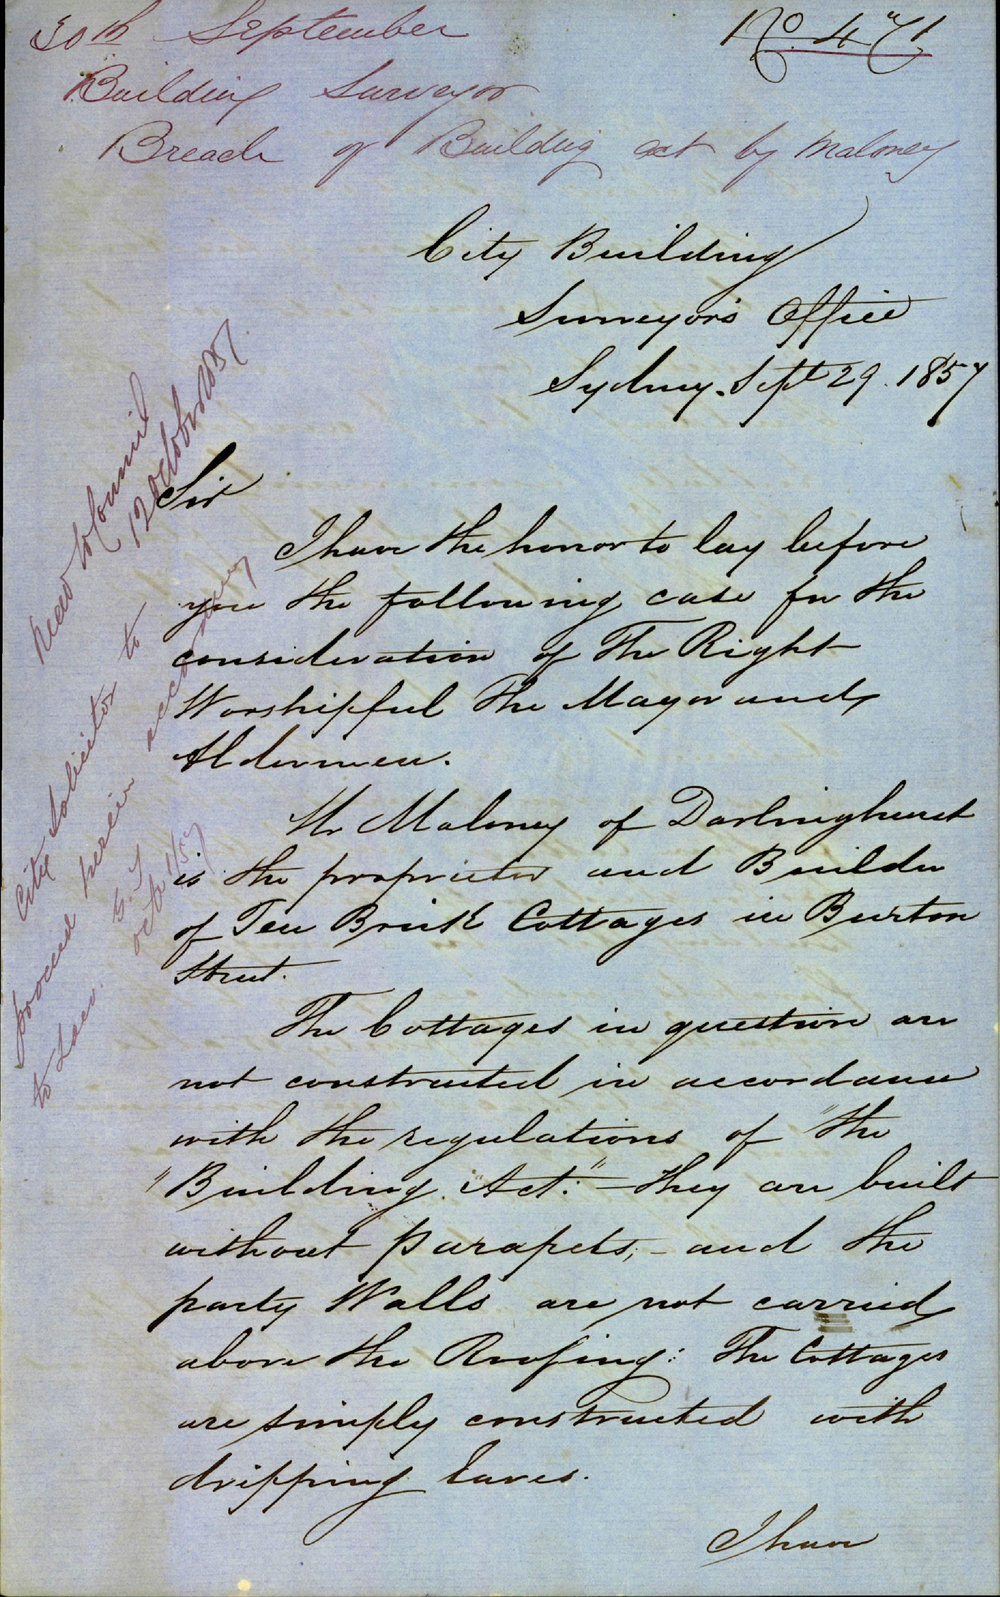 30th September
No. 471
Building Surveyor
Breach of Building act by Maloney
City Building
Surveyor's Office
Sydney. Sept 29. 1857
Sir
I have the honor to lay before
you the following case for the
consideration of The Right
Worshipful The Mayor and
Aldermen.
Mr Maloney of Darlinghurst
is the proprietor and Builder
of Ten Brick Cottages in Burton
Street.
The Cottages in question are
not constructed in accordance
with the regulations of "the
"Building Act:" – they are built
without parapets; – and the
party Walls are not carried
above the Roofing: The Cottages
are simply constructed with
dripping Eaves.
I have
Read to Council
12 October 1857
City Solicitor to
proceed herein according
to Law.
Oct 1/57